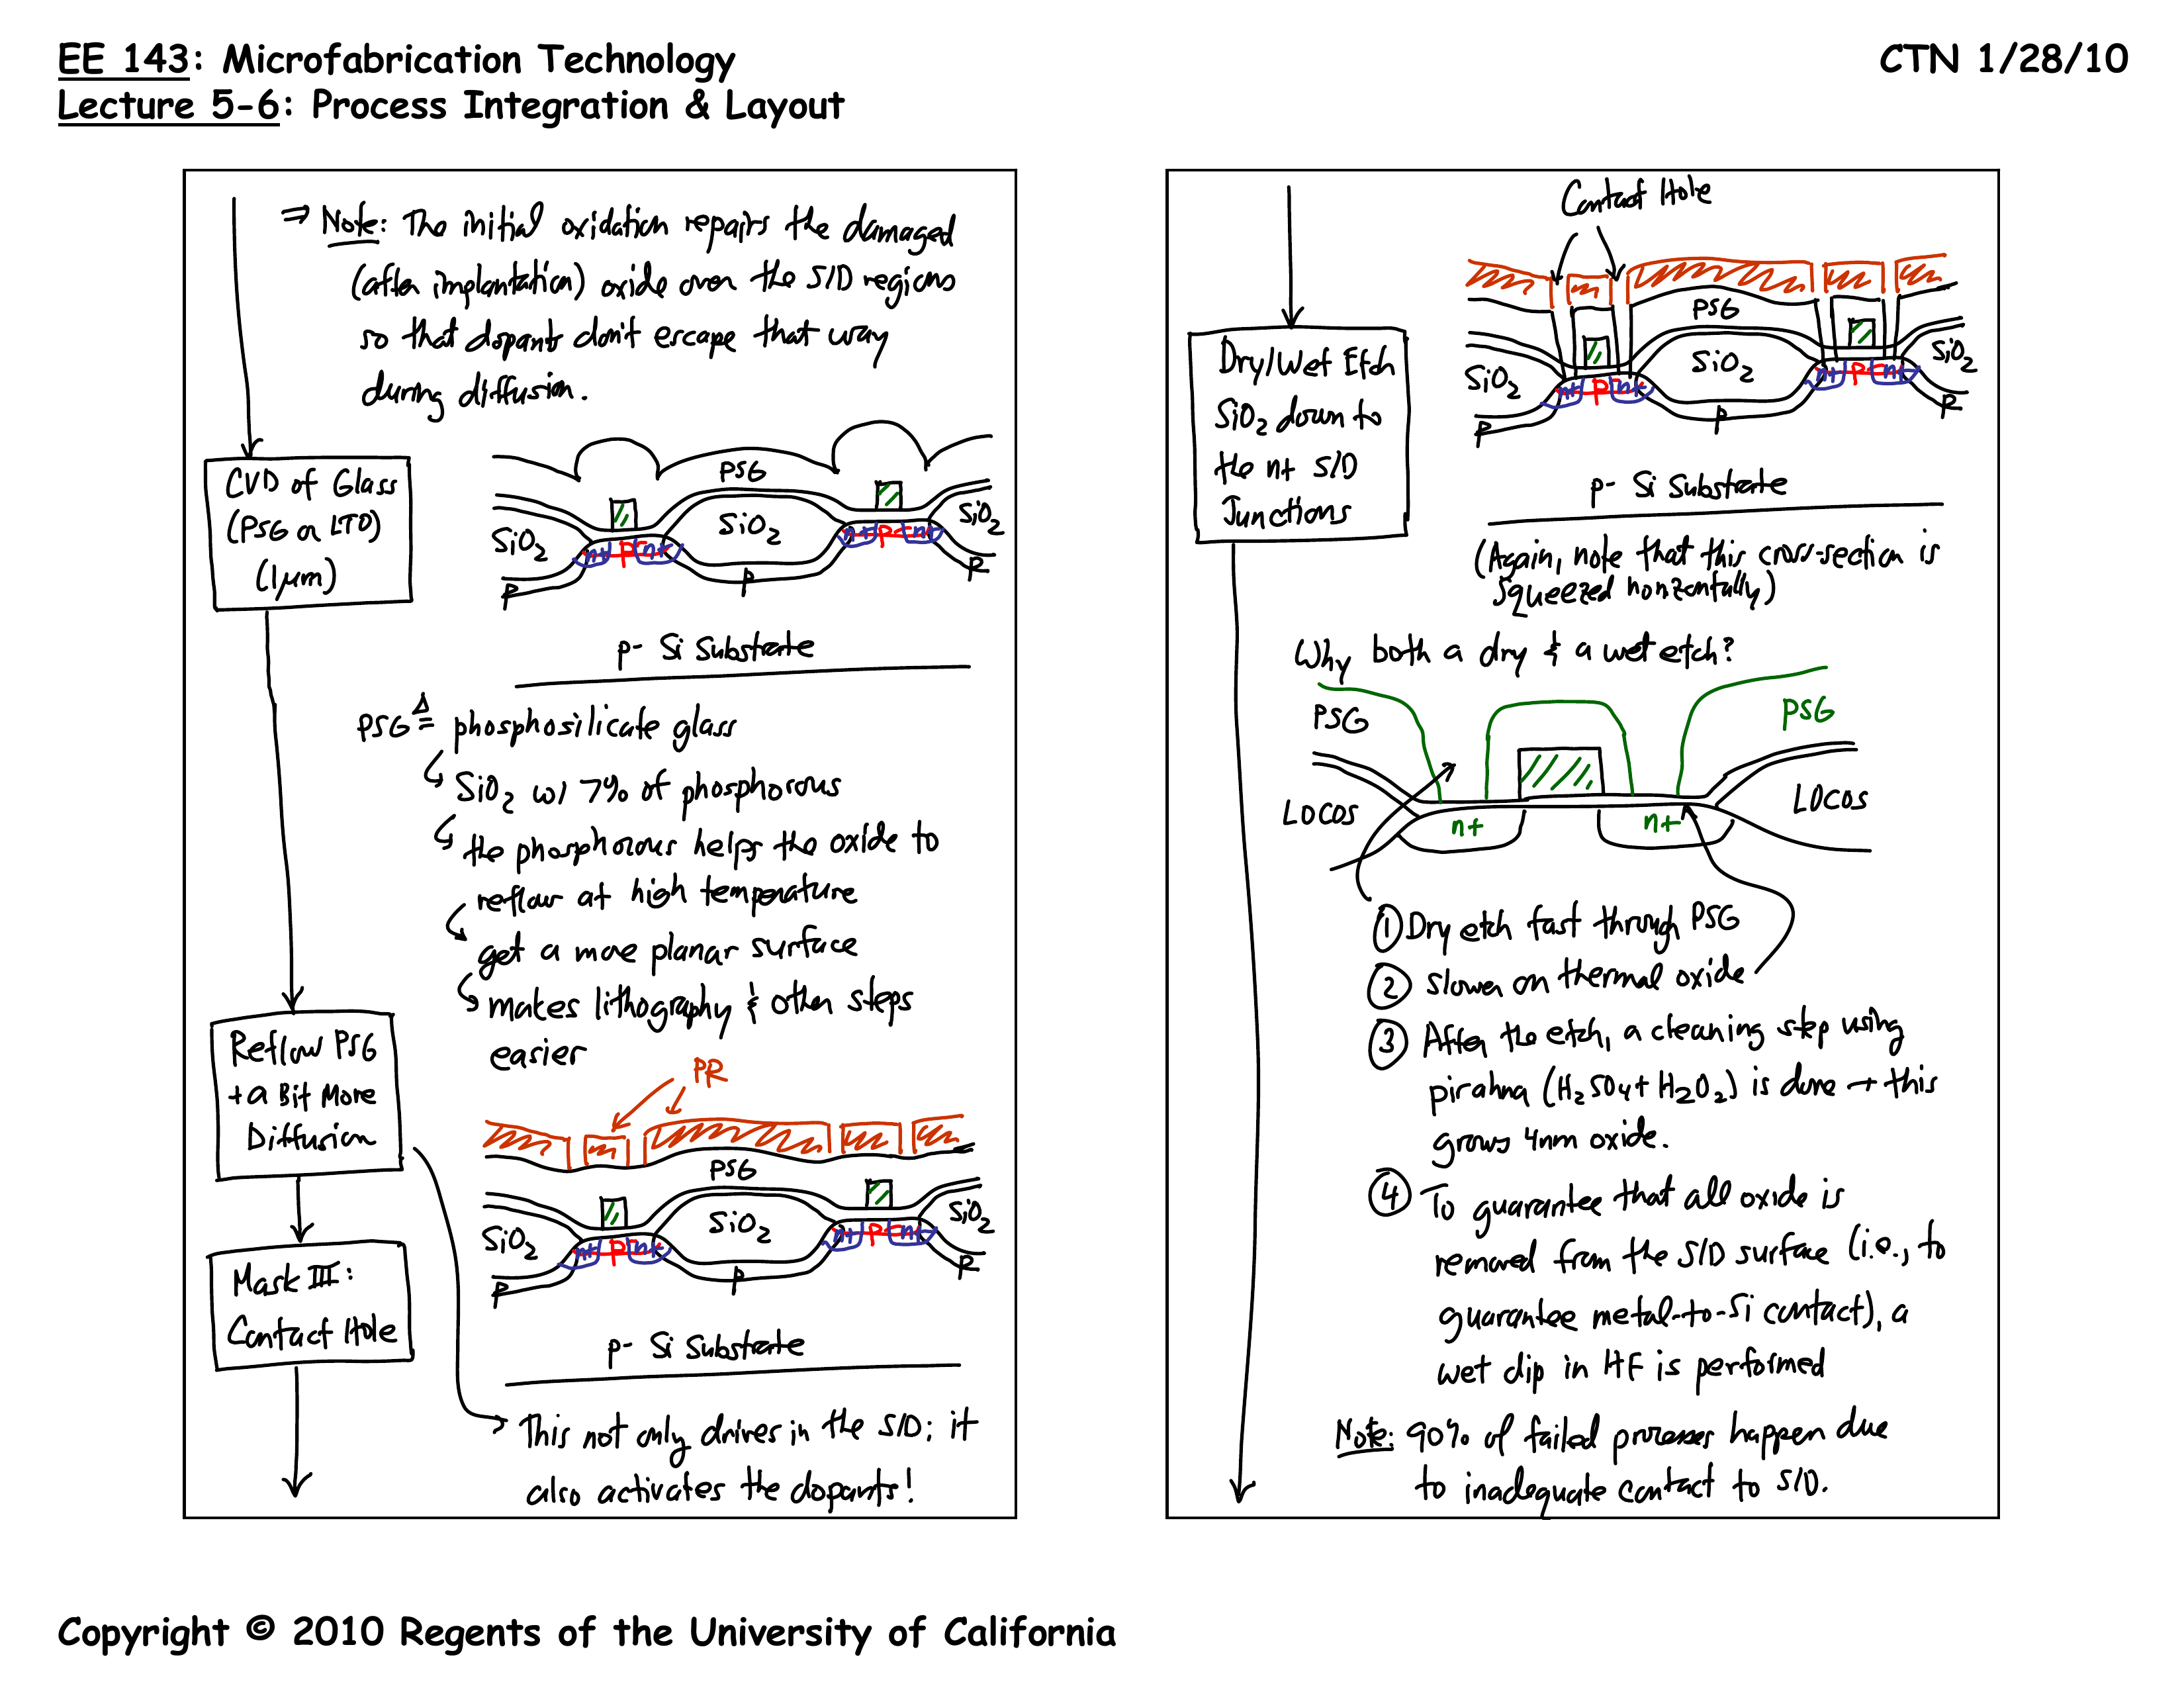 EE 143: Microfabrication Technology
CTN 1/28/10
Lecture 5-6: Process Integration & Layout
⇒ Note: The initial oxidation repairs the damaged
(after implantation) oxide over the S/D regions
so that dopants don't escape that way
during diffusion.
CVD of Glass
(PSG or LTO)
(1μm)
PSG
SiO2
SiO2
SiO2
n+ p n+
n+ p n+
p
p
p
p- Si Substrate
PSG ≜ phosphosilicate glass
↳ SiO2 w/ 7% of phosphorous
↳ the phosphorous helps the oxide to
reflow at high temperature
↳ get a more planar surface
↳ makes lithography & other steps
easier
Reflow PSG
+ a Bit More
Diffusion
PR
PSG
SiO2
SiO2
SiO2
n+ p n+
n+ p n+
p
p
p
p- Si Substrate
Mask III:
Contact Hole
→ This not only drives in the S/D; it
also activates the dopants!
Contact Hole
PSG
SiO2
SiO2
SiO2
n+ p n+
n+ p n+
p
p
p
p- Si Substrate
Dry/Wet Etch
SiO2 down to
the n+ S/D
Junctions
(Again, note that this cross-section is
squeezed horizontally)
Why both a dry & a wet etch?
PSG
PSG
LOCOS
LOCOS
n+
n+
① Dry etch fast through PSG
② Slower on thermal oxide
③ After the etch, a cleaning step using
pirahna (H2SO4 + H2O2) is done → this
grows 4nm oxide.
④ To guarantee that all oxide is
removed from the S/D surface (i.e., to
guarantee metal-to-Si contact), a
wet dip in HF is performed
Note: 90% of failed processes happen due
to inadequate contact to S/D.
Copyright © 2010 Regents of the University of California